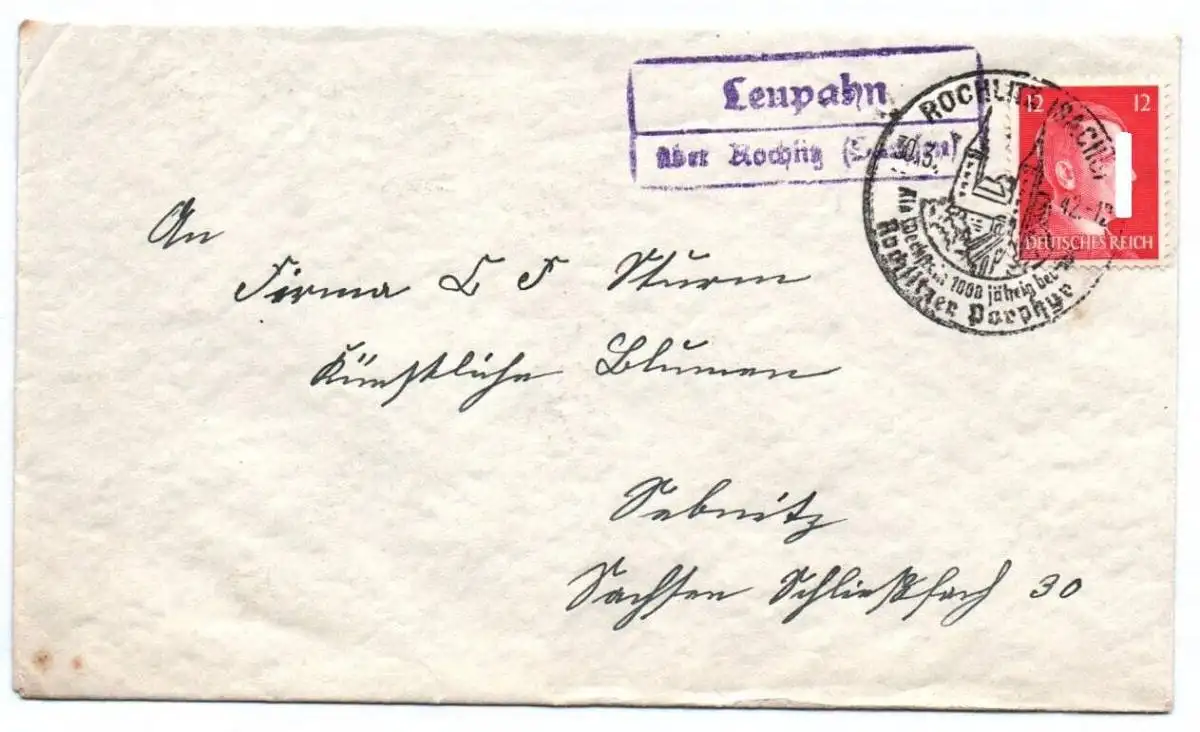 Leupahn
über Rochlitz (Sachsen)
ROCHLITZ (SACHS)
30.3. 42.-12
1000 jährig
Rochlitzer Porphyr
12 12
DEUTSCHES REICH
An
Firma C F Sturm
Künstliche Blumen
Sebnitz
Sachsen Schließfach 30